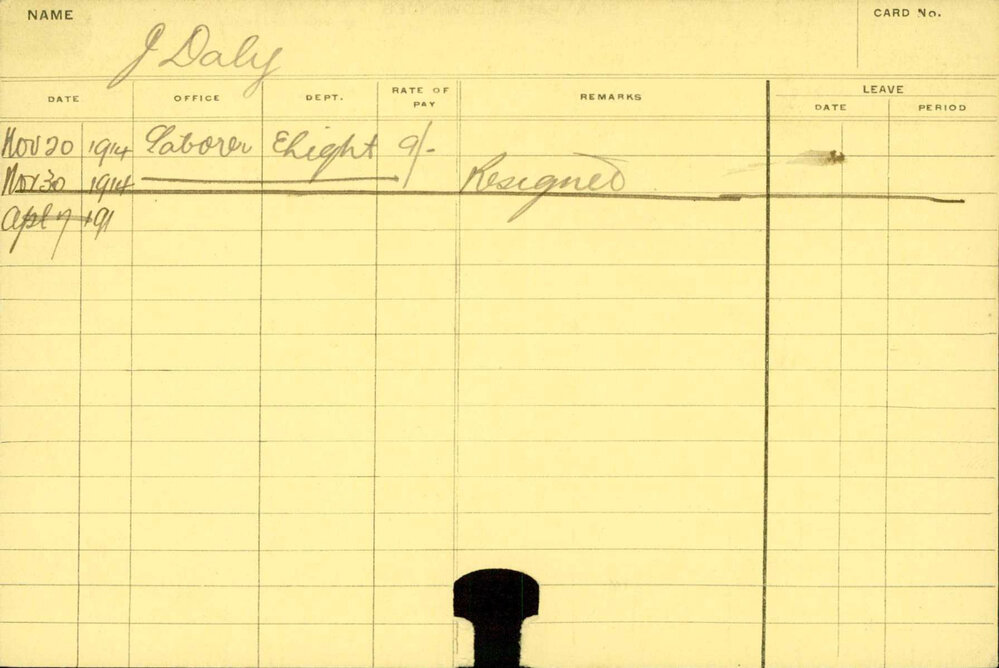 NAME
CARD No.
J Daly
DATE OFFICE DEPT. RATE OF PAY REMARKS LEAVE
DATE PERIOD
Nov 20 1914 Laborer Elight 9/-
Nov 30 1914 Resigned
Apl 7 191